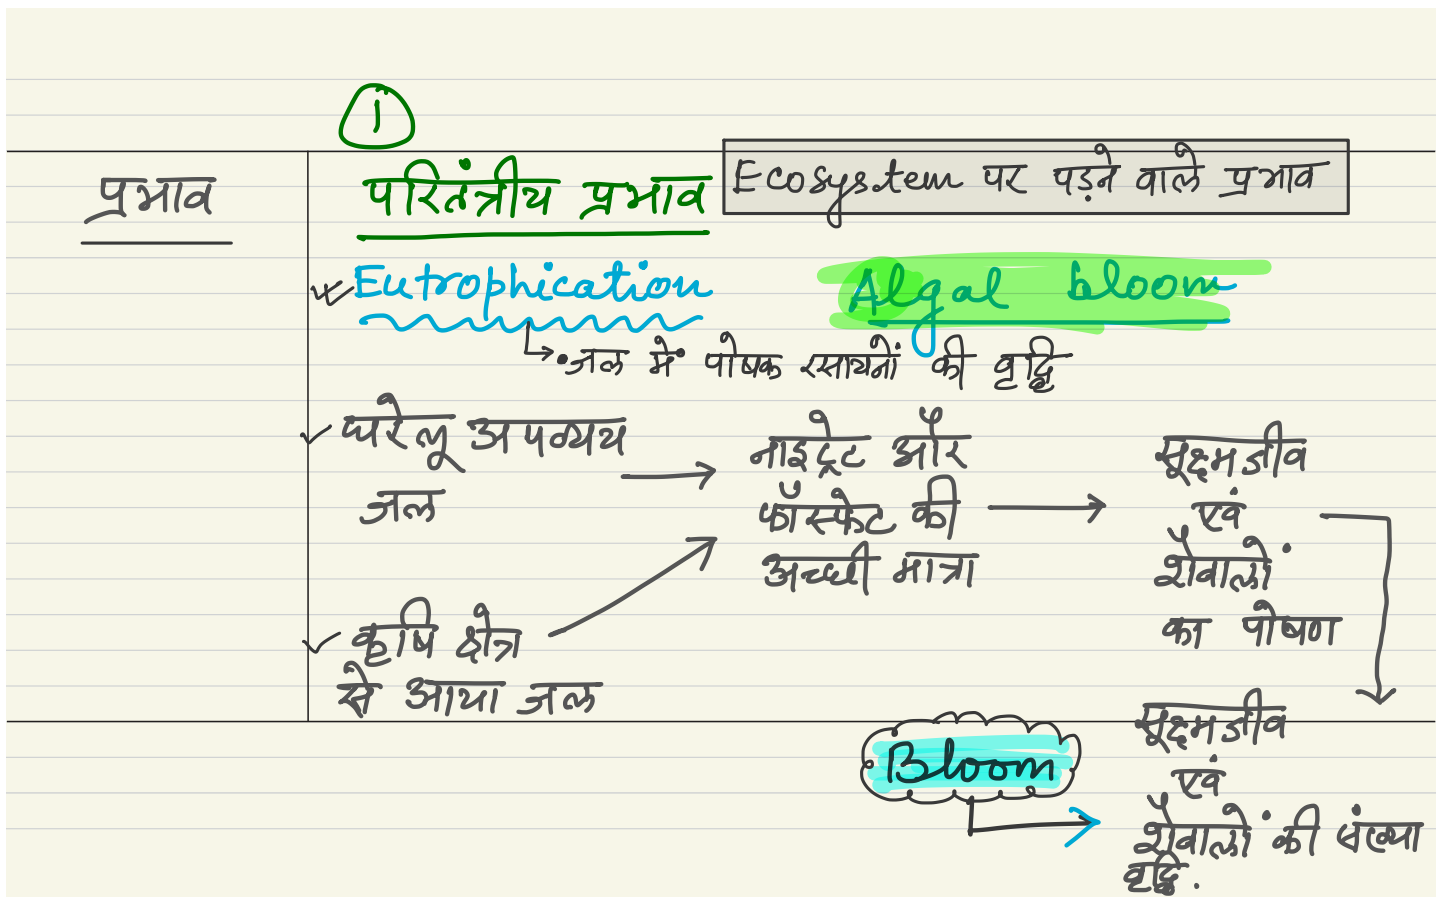 1
प्रभाव
परितंत्रीय प्रभाव
Ecosystem पर पड़ने वाले प्रभाव
Eutrophication
Algal bloom
जल में पोषक रसायनों की वृद्धि
घरेलू अपव्यय
जल
नाइट्रेट और
फॉस्फेट की
अच्छी मात्रा
सूक्ष्मजीव
एवं
शैवालों
का पोषण
कृषि क्षेत्र
से आया जल
Bloom
सूक्ष्मजीव
एवं
शैवालों की संख्या
वृद्धि.